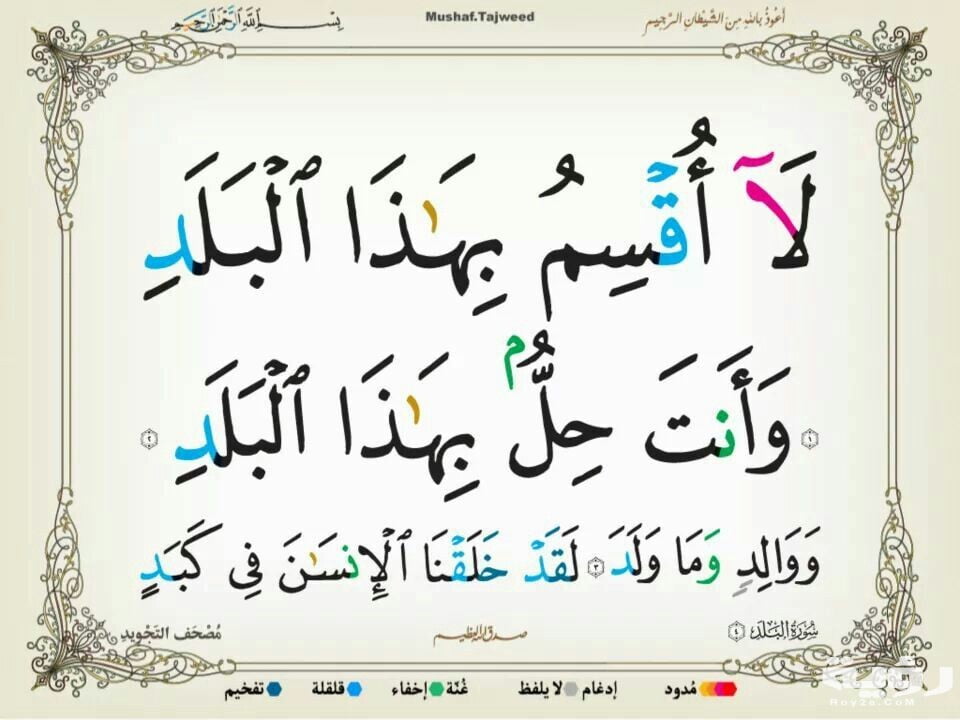 أعوذ بالله من الشيطان الرجيم
Mushaf.Tajweed
بسم الله الرحمن الرحيم
لَآ أُقۡسِمُ بِهَٰذَا ٱلۡبَلَدِ
١ وَأَنتَ حِلُّۢ بِهَٰذَا ٱلۡبَلَدِ ٢
وَوَالِدٍ وَمَا وَلَدَ ٣ لَقَدۡ خَلَقۡنَا ٱلۡإِنسَٰنَ فِى كَبَدٍ
سورة البلد ٤
صدق الله العظيم
مُصْحَف التجويد
مُدود
إدغام
لا يلفظ
غُنّة
إخفاء
قلقلة
تفخيم
رؤية
Roy2a.CoM